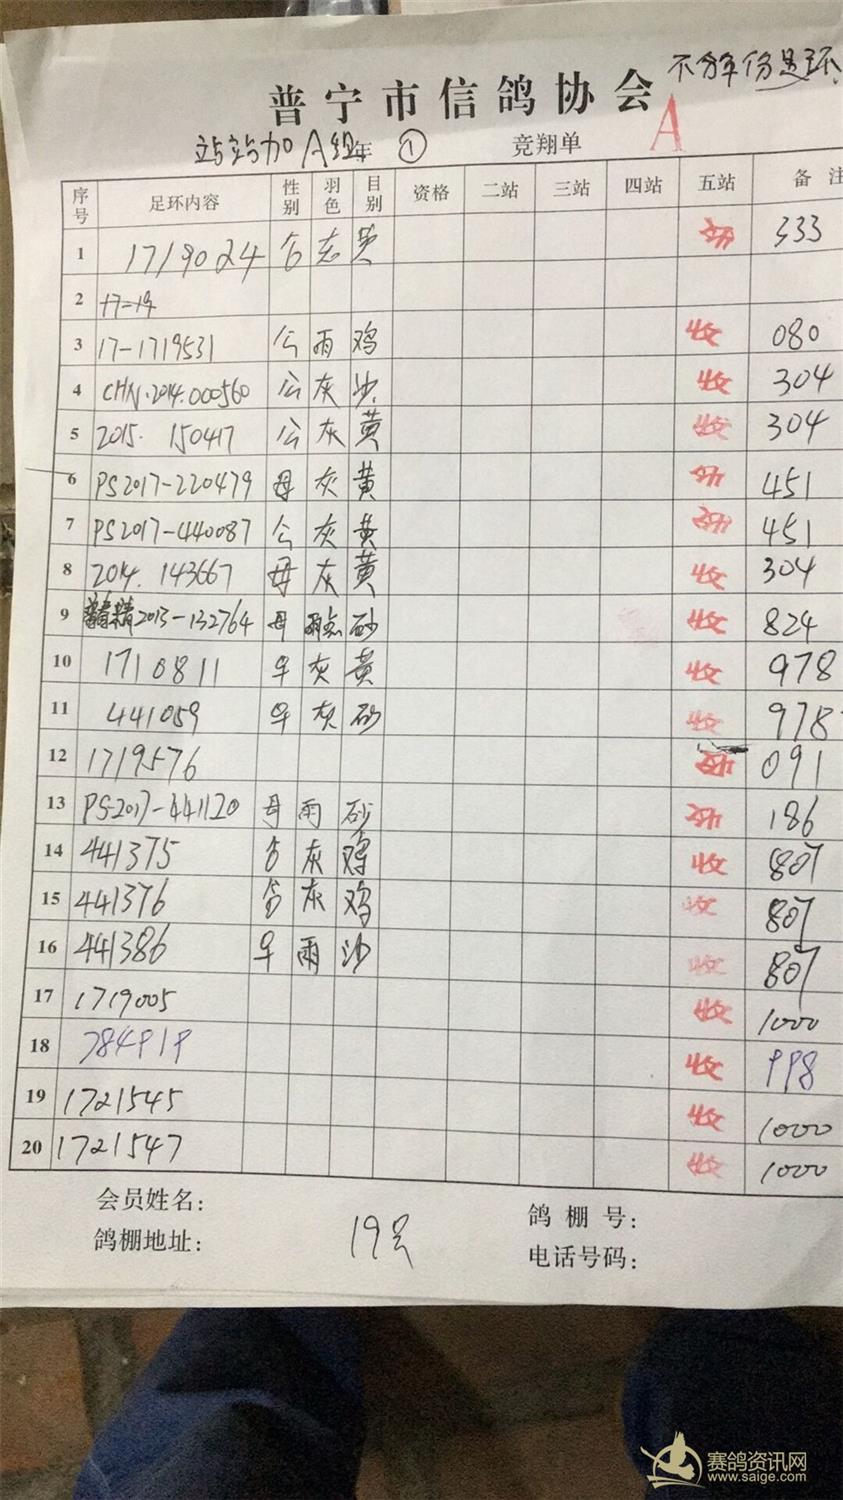 普宁市信鸽协会 不分年份是环
站站加A组年 ① 竞翔单 A
序号 足环内容 性别 羽色 目别 资格 二站 三站 四站 五站 备 注
1 1719024 333
2 17-19
3 17-1719531 公 雨 鸡 收 080
4 CHN.2014.000560 公 灰 沙 收 304
5 2015. 150417 公 灰 黄 收 304
6 PS2017-220479 母 灰 黄 451
7 PS2017-440087 公 灰 黄 451
8 2014. 143667 母 灰 黄 收 304
9 2013-132764 母 砂 收 824
10 1710811 灰 黄 收 978
11 441059 灰 砂 收 978
12 1719576 收 091
13 PS2017-441120 母 雨 砂 收 186
14 441375 灰 鸡 收 807
15 441376 灰 鸡 收 807
16 441386 雨 沙 收 807
17 1719005 收 1000
18 784919 收 998
19 1721545 收 1000
20 1721547 收 1000
会员姓名： 鸽 棚 号：
鸽棚地址： 19号 电话号码：
赛鸽资讯网
www.saige.com